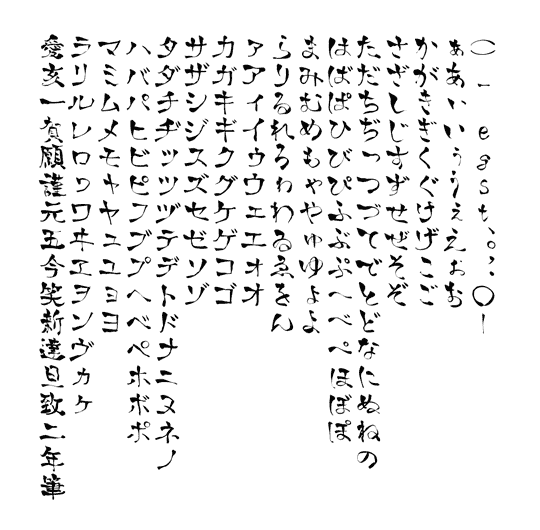 - e g s t 、。
ぁあぃいぅうぇえぉお
かがきぎくぐけげこご
さざしじすずせぜそぞ
ただちぢっつづてでとどなにぬねの
はばぱひびぴふぶぷへべぺほぼぽ
まみむめもゃやゅゆょよ
らりるれろゎわゐゑをん
ァアィイゥウェエォオ
カガキギクグケゲコゴ
サザシジスズセゼソゾ
タダチヂッツヅテデトドナニヌネノ
ハバパヒビピフブプヘベペホボポ
マミムメモャヤュユョヨ
ラリルレロヮワヰヱヲンヴヵヶ
愛亥一賀願謹元五今笑新達旦致二年筆